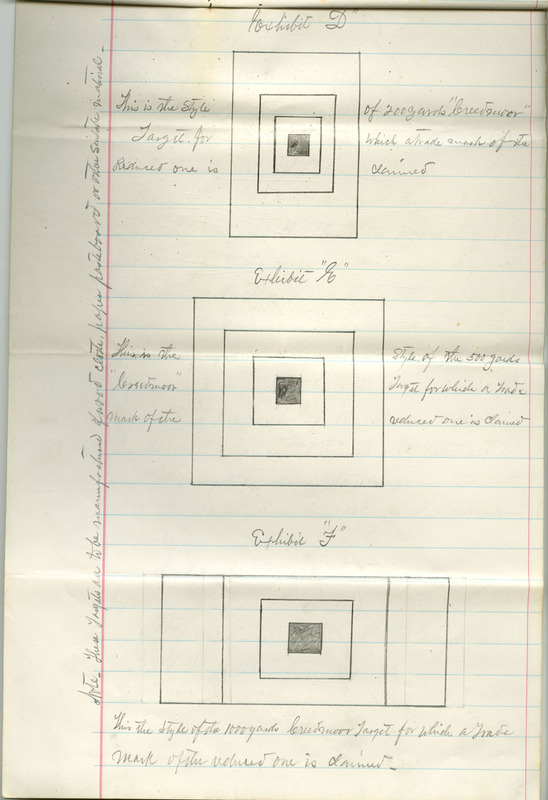 Exhibit "D"
This is the Style of 200 yards "Creedmoor"
Target for which a trade mark of the
Reduced one is claimed
Exhibit "E"
This is the Style of the 500 yards
"Creedmoor" Target for which a Trade
mark of the reduced one is claimed
Exhibit "F"
This the Style of the 1000 yards Creedmoor Target for which a Trade
mark of the reduced one is claimed_
Note_ These Targets are to be manufactured of wood cloth, paper pasteboard or other suitable material_